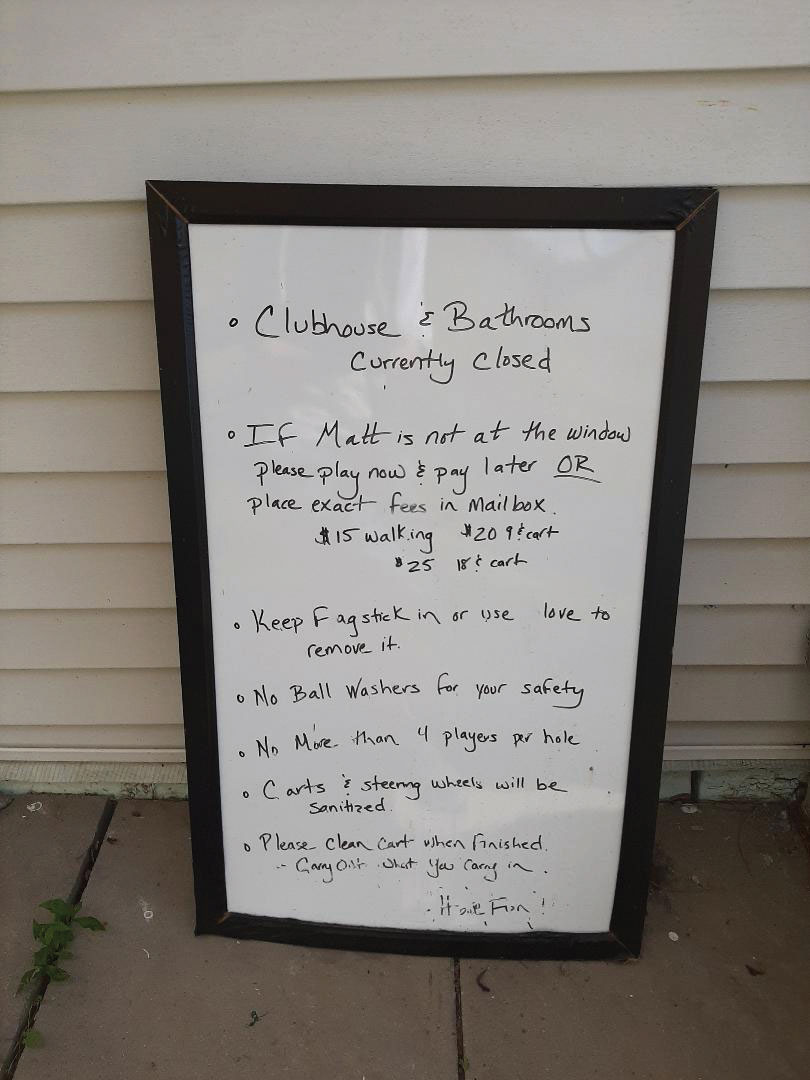 • Clubhouse & Bathrooms
Currently Closed
• If Matt is not at the window
please play now & pay later OR
place exact fees in Mailbox.
$15 walking $20 9 & cart
$25 18 & cart
• Keep Fagstick in or use love to
remove it.
• No Ball Washers for your safety
• No More than 4 players per hole
• Carts & steering wheels will be
sanitized.
• Please Clean Cart when finished.
-- Carry Out what You Carry in.
Have Fun!